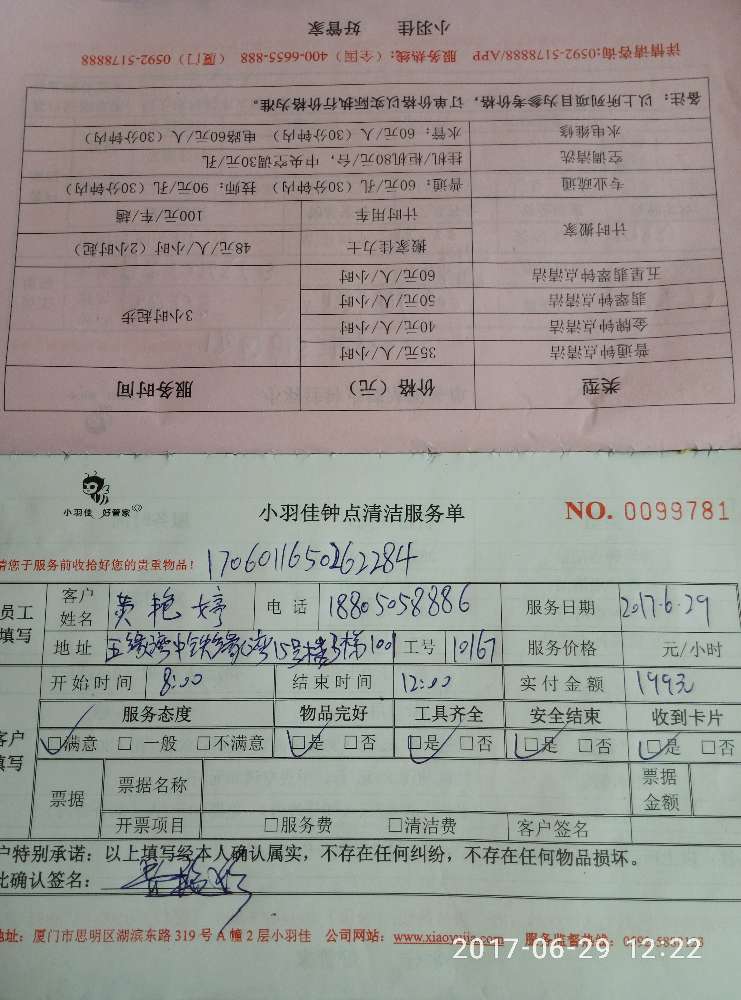 小羽佳 好管家
详情请咨询:0592-5178888/APP 服务热线:(全国)400-6655-888 (厦门)0592-5178888
备注:以上所列项目为参考价格,订单价格以实际执行价格为准。
水电维修 水管:60元/人(30分钟内) 电路60元/人(30分钟内)
空调清洗 挂机/柜机80元/台,中央空调30元/孔
专业疏通 普通:60元/孔(30分钟内) 技师:90元/孔(30分钟内)
计时搬家 计时用车 100元/车/趟
搬家佳力士 48元/人/小时(2小时起)
五星翡翠钟点清洁 60元/人/小时
翡翠钟点清洁 50元/人/小时 3小时起步
金牌钟点清洁 40元/人/小时
普通钟点清洁 35元/人/小时
类型 价格(元) 服务时间
小羽佳 好管家
小羽佳钟点清洁服务单 NO. 0099781
请您于服务前收拾好您的贵重物品! 1706011650262284
员工填写 客户姓名 黄艳婷 电话 18805058886 服务日期 2017.6.29
地址 五缘湾中铁缘湾15号楼3梯1001 工号 10167 服务价格 元/小时
开始时间 8:00 结束时间 12:00 实付金额 199元
客户填写 服务态度 物品完好 工具齐全 安全结束 收到卡片
□满意 □一般 □不满意 □是 □否 □是 □否 □是 □否 □是 □否
票据 票据名称 票据金额
开票项目 □服务费 □清洁费 客户签名
户特别承诺:以上填写经本人确认属实,不存在任何纠纷,不存在任何物品损坏。
此确认签名:
地址:厦门市思明区湖滨东路319号A幢2层小羽佳 公司网站:www.xiaoyujia.com 服务监督热线:
2017-06-29 12:22